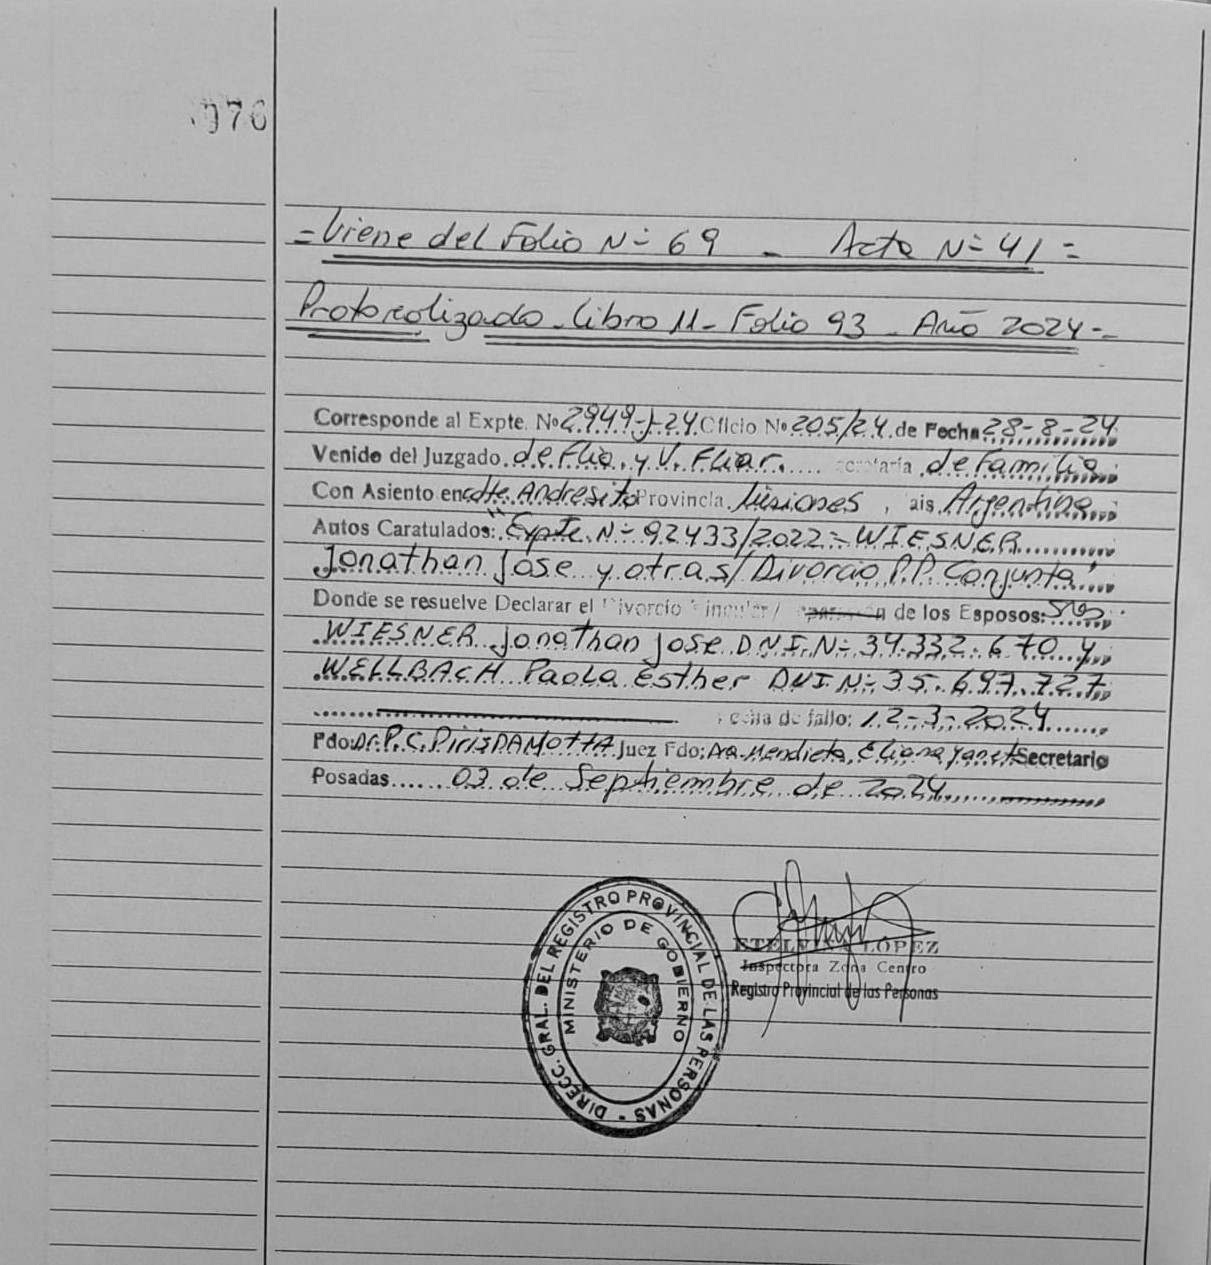 076
= Viene del Folio Nº 69 - Acta Nº 41 =
Protocolizado - Libro 11 - Folio 93 - Año 2024 -
Corresponde al Expte. Nº 2949-J-24 Oficio Nº 205/24 de Fecha 28-8-24
Venido del Juzgado de Flia. y V. Fliar. Secretaría de Familia
Con Asiento en Cdte. Andresito Provincia Misiones, País Argentina
Autos Caratulados: "Expte. Nº 92433/2022 - WIESNER
Jonathan Jose y otra s/ Divorcio P.P. Conjunta"
Donde se resuelve Declarar el Divorcio Vincular / Separación de los Esposos:
WIESNER Jonathan Jose DNI Nº 34.332.670 y
WELLBACH Paola Esther DNI Nº 35.697.727
Fecha de fallo: 12-3-2024
Fdo: Dr. P.C. Piris DA MOTTA Juez Fdo: Dra. Mendieta, Eliana Yanet Secretario
Posadas 03 de Septiembre de 2024
DIRECC. GRAL. DEL REGISTRO PROVINCIAL DE LAS PERSONAS -
MINISTERIO DE GOBIERNO
ETELVINA LÓPEZ
Inspectora Zona Centro
Registro Provincial de las Personas